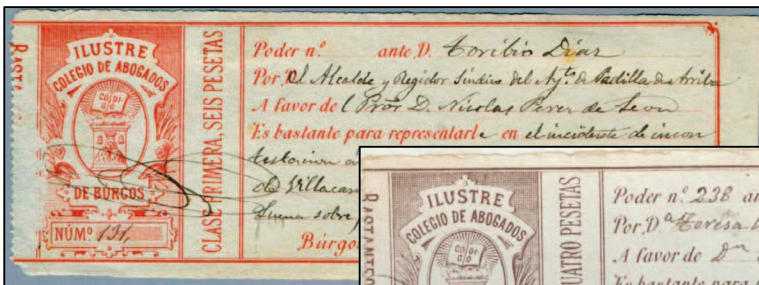 BASTA
ILUSTRE
COLEGIO DE ABOGADOS
CODIGO
DE BÚRGOS
NÚMº 131,
CLASE PRIMERA, SEIS PESETAS
Poder n.º ante D. Toribio Diaz
Por El Alcalde y Regidor Sindico del Ayto. de Padilla de Arriba
A favor del Pror D. Nicolas Perez de Leon
Es bastante para representarle en el incidente de incon
de Villacan
Suma sobre
Búrgo
BASTANTEO
ILUSTRE
COLEGIO DE ABOGADOS
CODIGO
UATRO PESETAS
Poder n.º 238 an
Por D.ª Teresa
A favor de Dn
Es bastante para